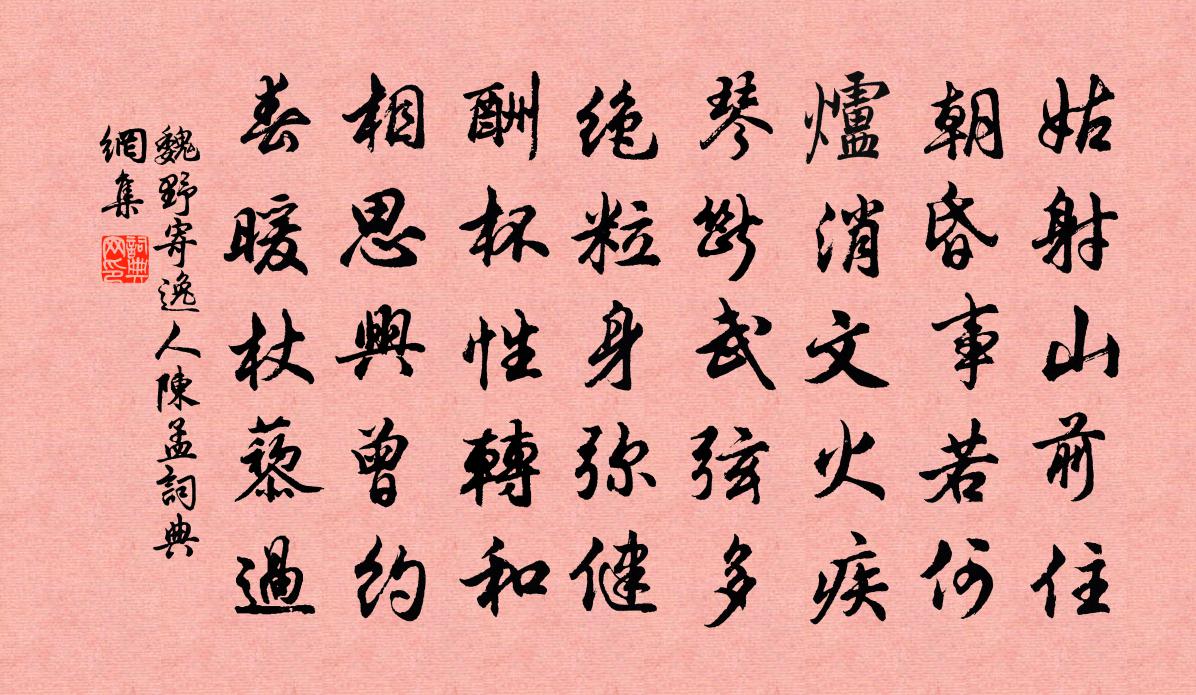 姑射山前住
朝昏事若何
爐消文火疾
琴斷武弦多
绝粒身弥健
酬杯性轉和
相思興曾约
春暖杖藜過
魏野寄逸人陳孟詞典
網集
詞典
网印